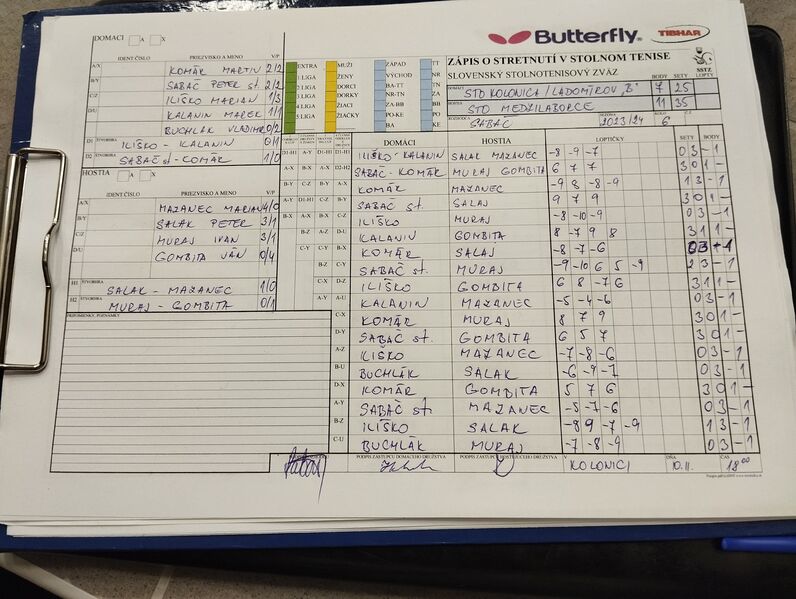 DOMACI A X
IDENT ČÍSLO PRIEZVISKO A MENO V/P
A/X KOMÁR MARTIN 2/2
B/Y SABAČ PETER st. 2/2
C/Z ILIŠKO MARIAN 1/3
D/U KALANIN MAREK 1/1
BUCHLÁK VLADIMÍR 0/2
D1 ŠTVORHRA ILIŠKO - KALANIN 0/1
D2 ŠTVORHRA SABAČ st - KOMÁR 1/0
HOSTIA A X
IDENT ČÍSLO PRIEZVISKO A MENO V/P
A/X MAZANEC MARIAN 4/0
B/Y SALAK PETER 3/1
C/Z MURAJ IVAN 3/1
D/U GOMBITA JÁN 0/4
H1 ŠTVORHRA SALAK - MAZANEC 1/0
H2 ŠTVORHRA MURAJ - GOMBITA 0/1
PRIPOMIENKY, POZNÁMKY
EXTRA MUŽI ZÁPAD TT
1 LIGA ŽENY VÝCHOD NR
2 LIGA DORCI BA-TT TN
3 LIGA DORKY NR-TN ZA
4 LIGA ŽIACI ZA-BB BB
5 LIGA ŽIAČKY PO-KE PO
BA KE
Butterfly TIBHAR
ZÁPIS O STRETNUTÍ V STOLNOM TENISE
SLOVENSKÝ STOLNOTENISOVÝ ZVÄZ SSTZ
BODY SETY LOPTY
DOMÁCI STO KOLONICA/LADOMIROV "B" 7 25
HOSTIA STO MEDZILABORCE 11 35
ROZHODCA SABAČ SEZÓNA 2023/24 KOLO 6
DOMÁCI HOSTIA LOPTIČKY SETY BODY
ILIŠKO - KALANIN SALAK MAZANEC -8 -9 -7 0 3 - 1
SABAČ - KOMÁR MURAJ GOMBITA 6 7 7 3 0 1 -
KOMÁR MAZANEC -9 8 -8 -9 1 3 - 1
SABAČ st. SALAJ 9 7 9 3 0 1 -
ILIŠKO MURAJ -8 -10 -9 0 3 - 1
KALANIN GOMBITA 8 -7 9 8 3 1 1 -
KOMÁR SALAJ -8 -7 -6 0 3 - 1
SABAČ st. MURAJ -9 -10 6 5 -9 2 3 - 1
ILIŠKO GOMBITA 6 8 -7 6 3 1 1 -
KALANIN MAZANEC -5 -4 -6 0 3 - 1
KOMÁR MURAJ 8 7 9 3 0 1 -
SABAČ st. GOMBITA 6 5 7 3 0 1 -
ILIŠKO MAZANEC -7 -8 -6 0 3 - 1
BUCHLÁK SALAK -6 -9 -7 0 3 - 1
KOMÁR GOMBITA 5 7 6 3 0 1 -
SABAČ st. MAZANEC -5 -7 -6 0 3 - 1
ILIŠKO SALAK -8 9 -7 -9 1 3 - 1
BUCHLÁK MURAJ -7 -8 -9 0 3 - 1
PODPIS ZÁSTUPCU DOMÁCEHO DRUŽSTVA PODPIS ZÁSTUPCU HOSŤUJÚCEHO DRUŽSTVA V KOLONICI DŇA 10.11. ČAS 18 00